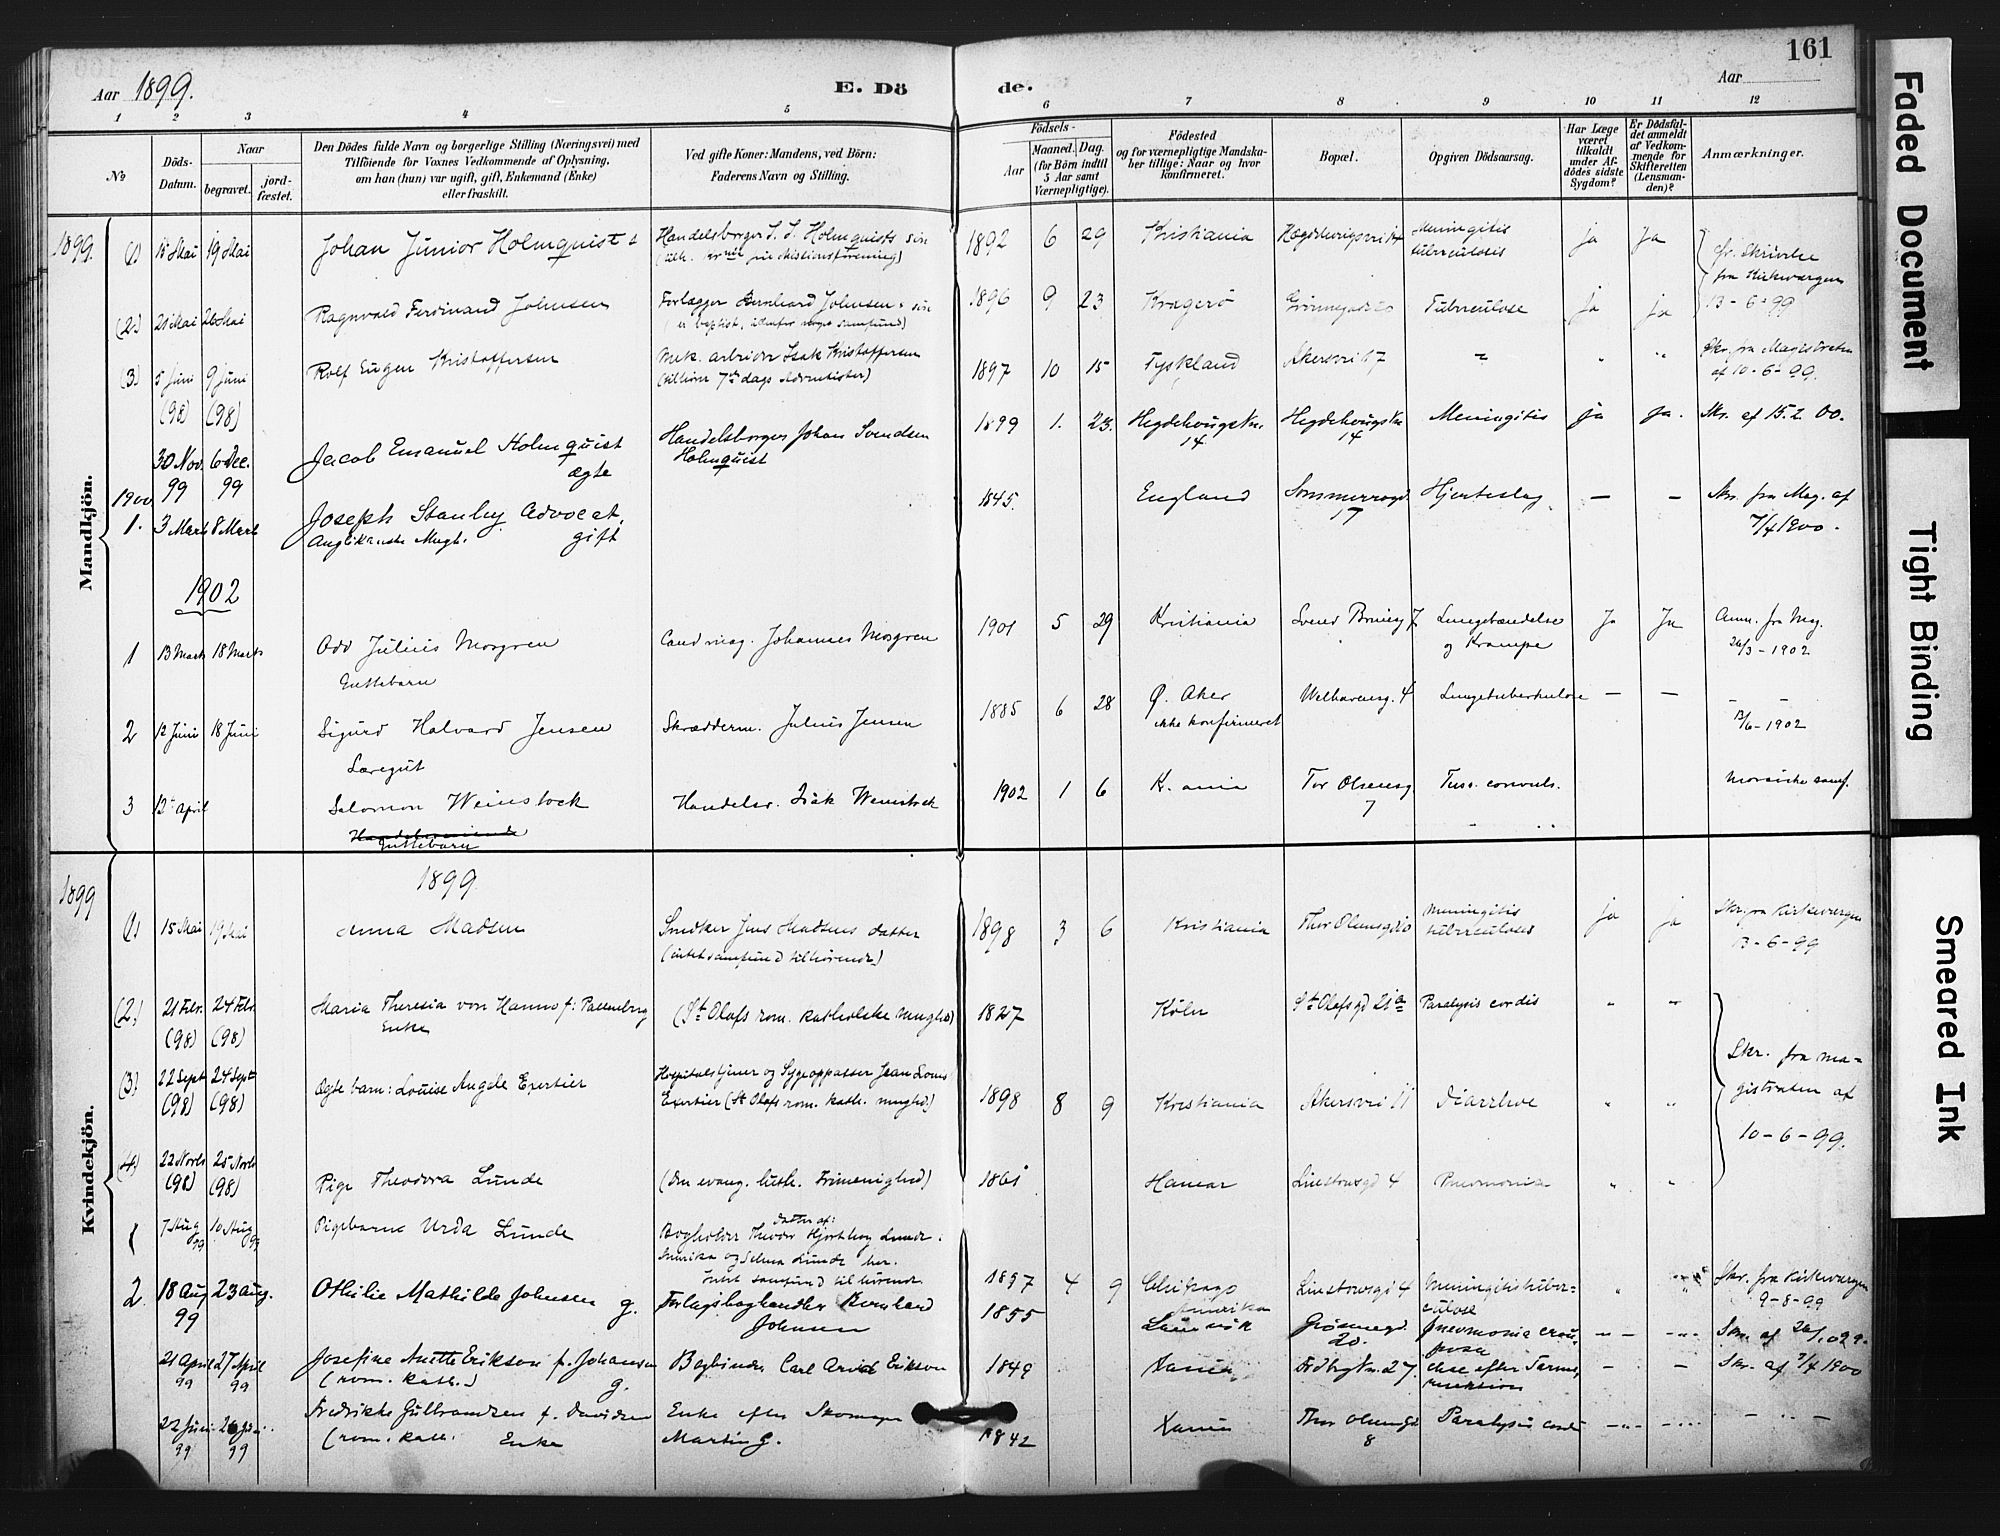 161
Aar 1899.
E. Dö de.
Aar
1 2 3 4 5 6 7 8 9 10 11 12
No
Döds-Datum.
Naar
begravet.
jord-fæstet.
Den Dödes fulde Navn og borgerlige Stilling (Næringsvei) med
Tilföiende for Voxnes Vedkommende af Oplysning,
om han (hun) var ugift, gift, Enkemand (Enke)
eller fraskilt.
Ved gifte Koner: Mandens, ved Börn:
Faderens Navn og Stilling.
Födsels-
Aar
Maaned. Dag.
(for Börn indtil
5 Aar samt
Værnepligtige).
Födested
og for værnepligtige Mandska-
ber tillige: Naar og hvor
konfirmeret.
Bopæl.
Opgiven Dödsaarsag.
Har Læge
været
tilkaldt
under Af-
dödes sidste
Sygdom?
Er Dödsfal-
det anmeldt
af Vedkom-
mende for
Skifteretten
(Lensman-
den)?
Anmærkninger.
Mandkjön.
1899. (1) 15 Mai 19 Mai Johan Junior Holmquist Handelsborger J. S. Holmquists søn 1892 6 29 Kristiania Meningitis ja ja
tuberculosis
fra Kirkevergen
13-6-99
(2) 21 Mai 26 Mai Ragnvald Ferdinand Johnsen Forlægger Bernhard Johnsen søn 1896 9 23 Kragerö Tuberculose ja ja
(3) 5 Juni 9 Juni Rolf Eugen Kristoffersen Mek. arbeider Isak Kristoffersen 1897 10 15 Tyskland Akersvei 17 Skr. fra Magistraten
(98) (98) (tilhører 7de dags Adventister) af 10-6-99.
30 Nov. 6 Dec. Jacob Emanuel Holmquist Handelsborger Johan Svendsen 1899 1. 23. Meningitis ja ja. Skr. af 15.2.00.
99 99 ægte Holmquist 14 14
1900
1. 3 Marts 8 Marts Joseph Stanley Advocat. 1845. England 17 Hjerteslag — — Skr. fra Mag. af
gift 7/4 1900.
1902
1 13 Marts 18 Marts Odd Julius Mosgren Cand. mag. Johannes Mosgren 1901 5 29 Kristiania Lungebetændelse Ja Ja Anm. fra Mag.
Guttebarn og Krampe 26/3-1902
2 12 Juni 18 Juni Sigurd Halvard Jensen Skrædderm. Julius Jensen 1885 6 28 Ø. Aker Welhavensg. 4 Lungetuberkulose — —
Læregut ikke konfirmeret 13/6-1902
3 12te april Salomon Weinstock Handelsr. Isak Weinstock 1902 1 6 K.ania Tor Olsensg. Mosaiske samf.
Guttebarn 7
Kvindekjön.
1899
1899
(1) 15 Mai 19 Mai Anna Madsen Snedker Jens Madsens datter 1898 3 6 Kristiania Meningitis ja ja Skr. fra Kirkevergen
(intet samfund tilhørende) tuberculosis 13-6-99
(2) 21 Febr. 24 Febr. Maria Theresia von Hanno f: Pallenberg (St Olafs rom. katholske menghed) 1827 Köln St Olafsgd 21 a Paralysis cordis
(98) (98) Enke
(3) 22 Sept 24 Sept Ægte barn: Louise Angele Exertier Hospitalstjener og Sygeopasser Jean Louis 1898 8 9 Kristiania Akersvei 11 Diarrhoe
(98) (98) Exertier (St Olafs rom. kath. meghd.)
Skr. fra ma-
gistraten af
10-6-99.
(4) 22 Novb 25 Novb Pige Theodora Lunde (Den evang. luth. Frimenighed) 1861 Hamar Linstowsgd 4 Pneumonia
(98) (98)
1 7 Aug 10 Aug Pigebarn Urda Lunde datter af:
99 99 Bogholder Theodor Hjortberg Lunde
Amerika og Selma Lunde her.
Intet samfund tilhørende 1897 4 9 Chikago Linstowsgd 4 Meningitis tuber- Skr. fra Kirkevergen
Amerika culose 9-8-99
2. 18 Aug 23 Aug. Othilie Mathilde Johnsen g. Forlagsboghandler Bernhard 1855
99 Johnsen Grønnegd. 20 Pneumonia crou-
posa
21 April 27 April Josefine Anette Erikson f. Johansen Bogbinder Carl Arvid Erikson 1849 — — Skr. af 7/4 1900
99 99 (rom. kath.) g.
22 Juni 26 Juni Fredrikke Gulbrandsen f. Davidsen Enke efter Skomager 1842 Thor Olsensgd Paralysis cordis
99 99 (rom. kath. Enke Martin G. 8
Faded Document
Tight Binding
Smeared Ink